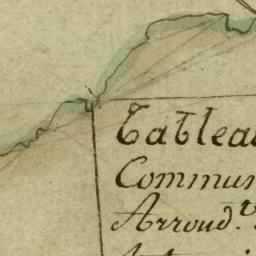 Tableau
Commun
Arroud.t